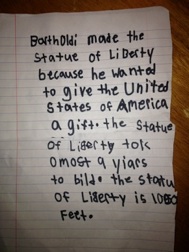 Bartholdi made the
Statue of Liberty
because he wanted
to give the United
States of America
a gift. the Statue
of Liberty tok
omost 9 yiars
to bild. the statu
of Liberty is
feet.